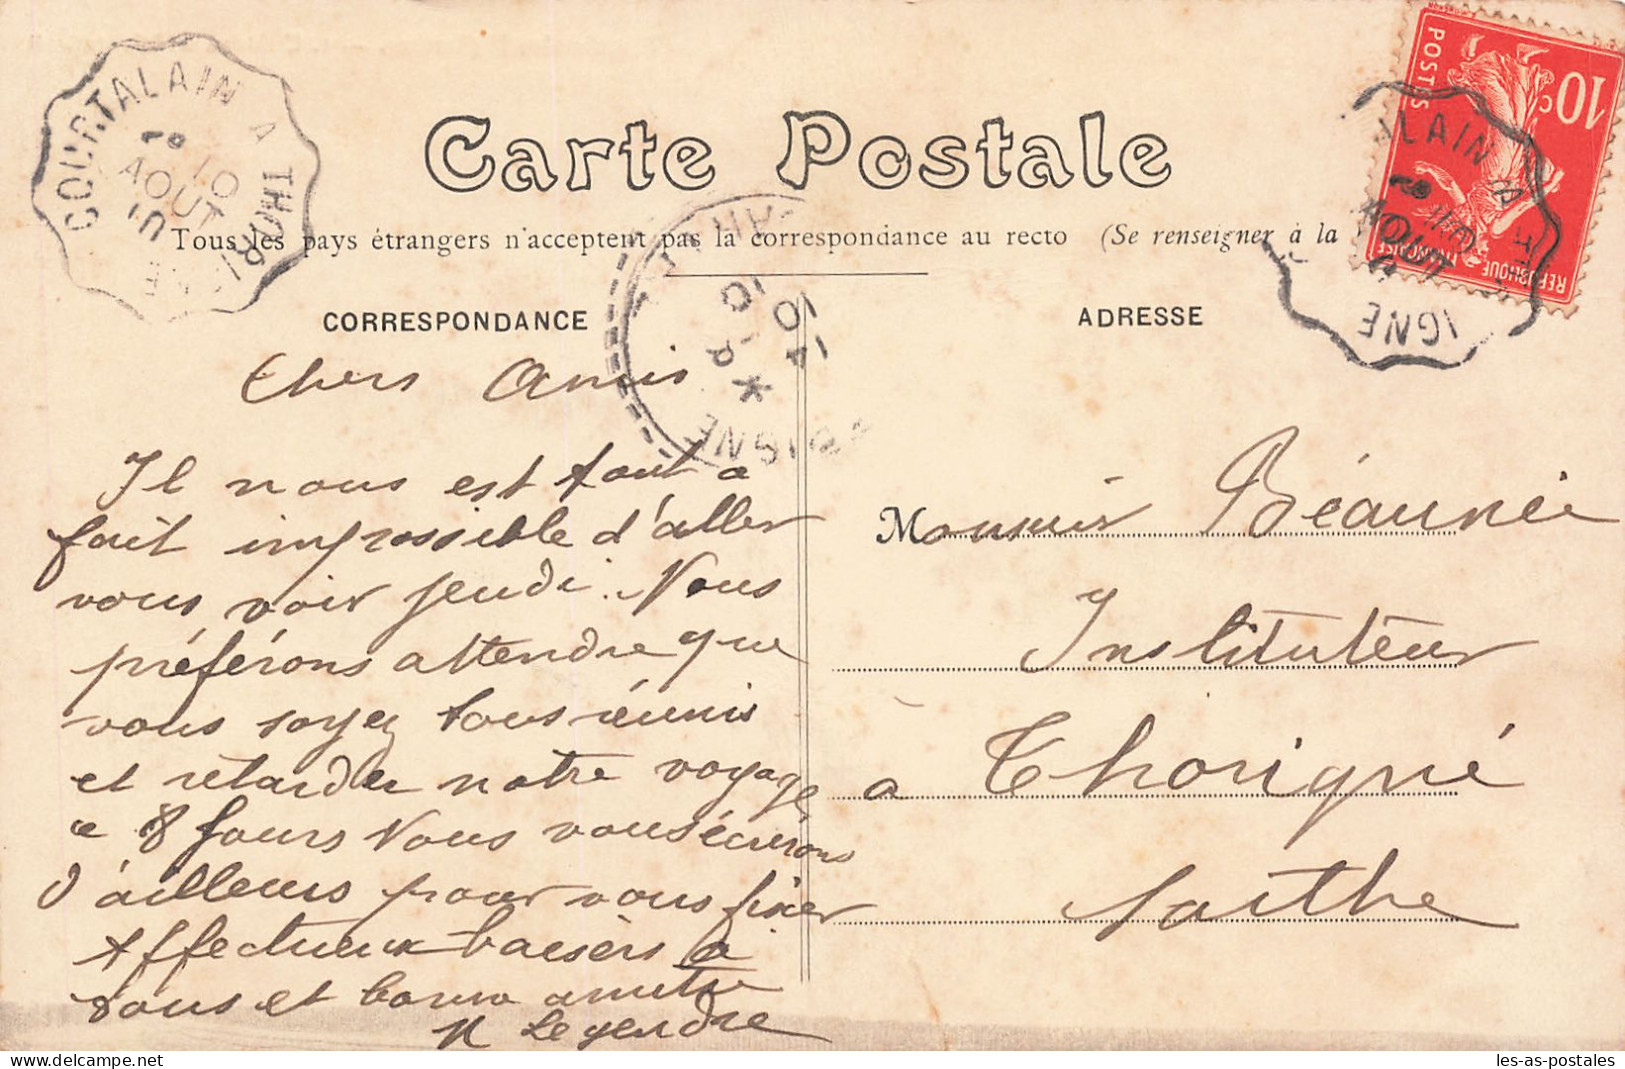 COURTALAIN A THORIGNE
10
AOUT
10
POSTES
10c
REPUBLIQUE FRANÇAISE
ALAIN A
AOUT
IGNE
Carte Postale
Tous les pays étrangers n'acceptent pas la correspondance au recto (Se renseigner à la
CORRESPONDANCE
ADRESSE
Chers Amis
Il nous est tout a
fait impossible d'aller
vous voir jeudi. Nous
préférons attendre que
vous soyez tous réunis
et retarder notre voyage
a 8 jours Nous vous écrirons
d'ailleurs pour vous fixer
Affectueux baisers a
tous et bonne amitié
N Legendre
Monsieur Béaunéi
Instituteur
a Thorigné
Sarthe
les-as-postales
delcampe.net